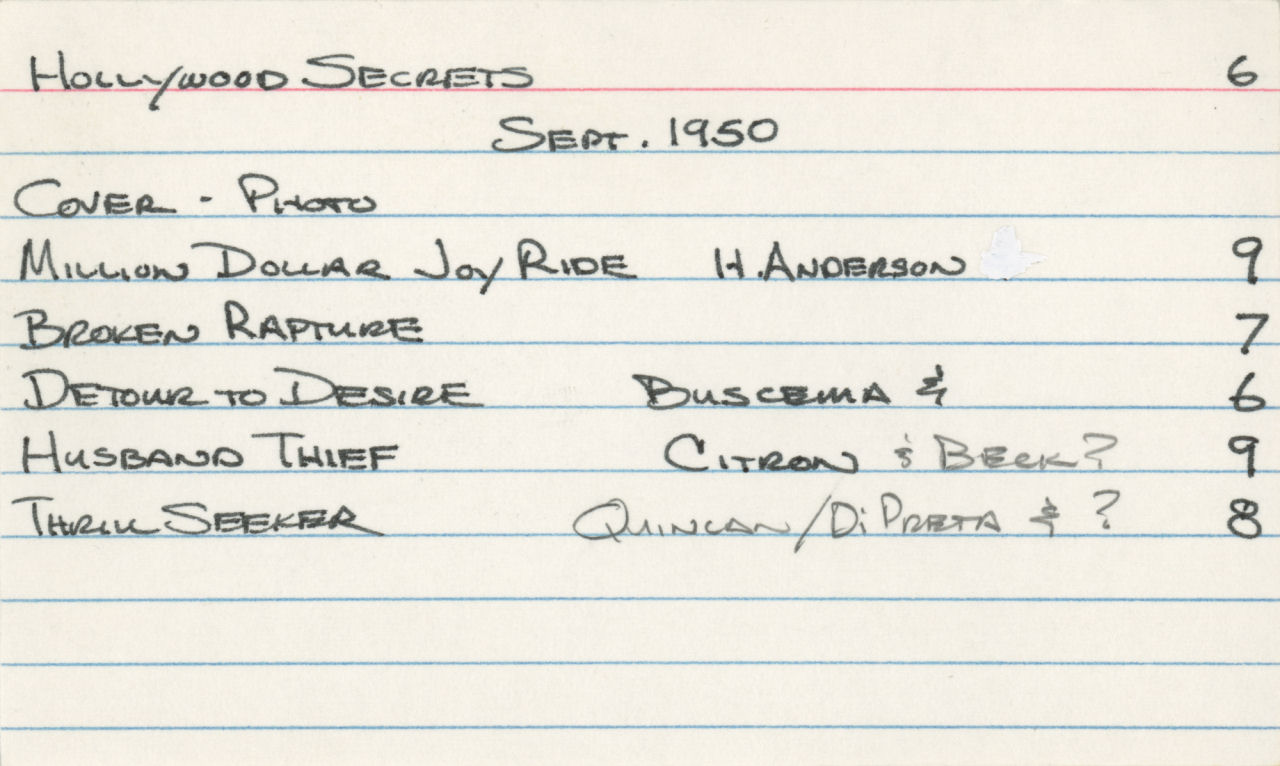 HOLLYWOOD SECRETS 6
SEPT. 1950
COVER - PHOTO
MILLION DOLLAR JOY RIDE H. ANDERSON 9
BROKEN RAPTURE 7
DETOUR TO DESIRE BUSCEMA & 6
HUSBAND THIEF CITRON & BECK? 9
THRILL SEEKER QUINLAN/DiPRETA & ? 8